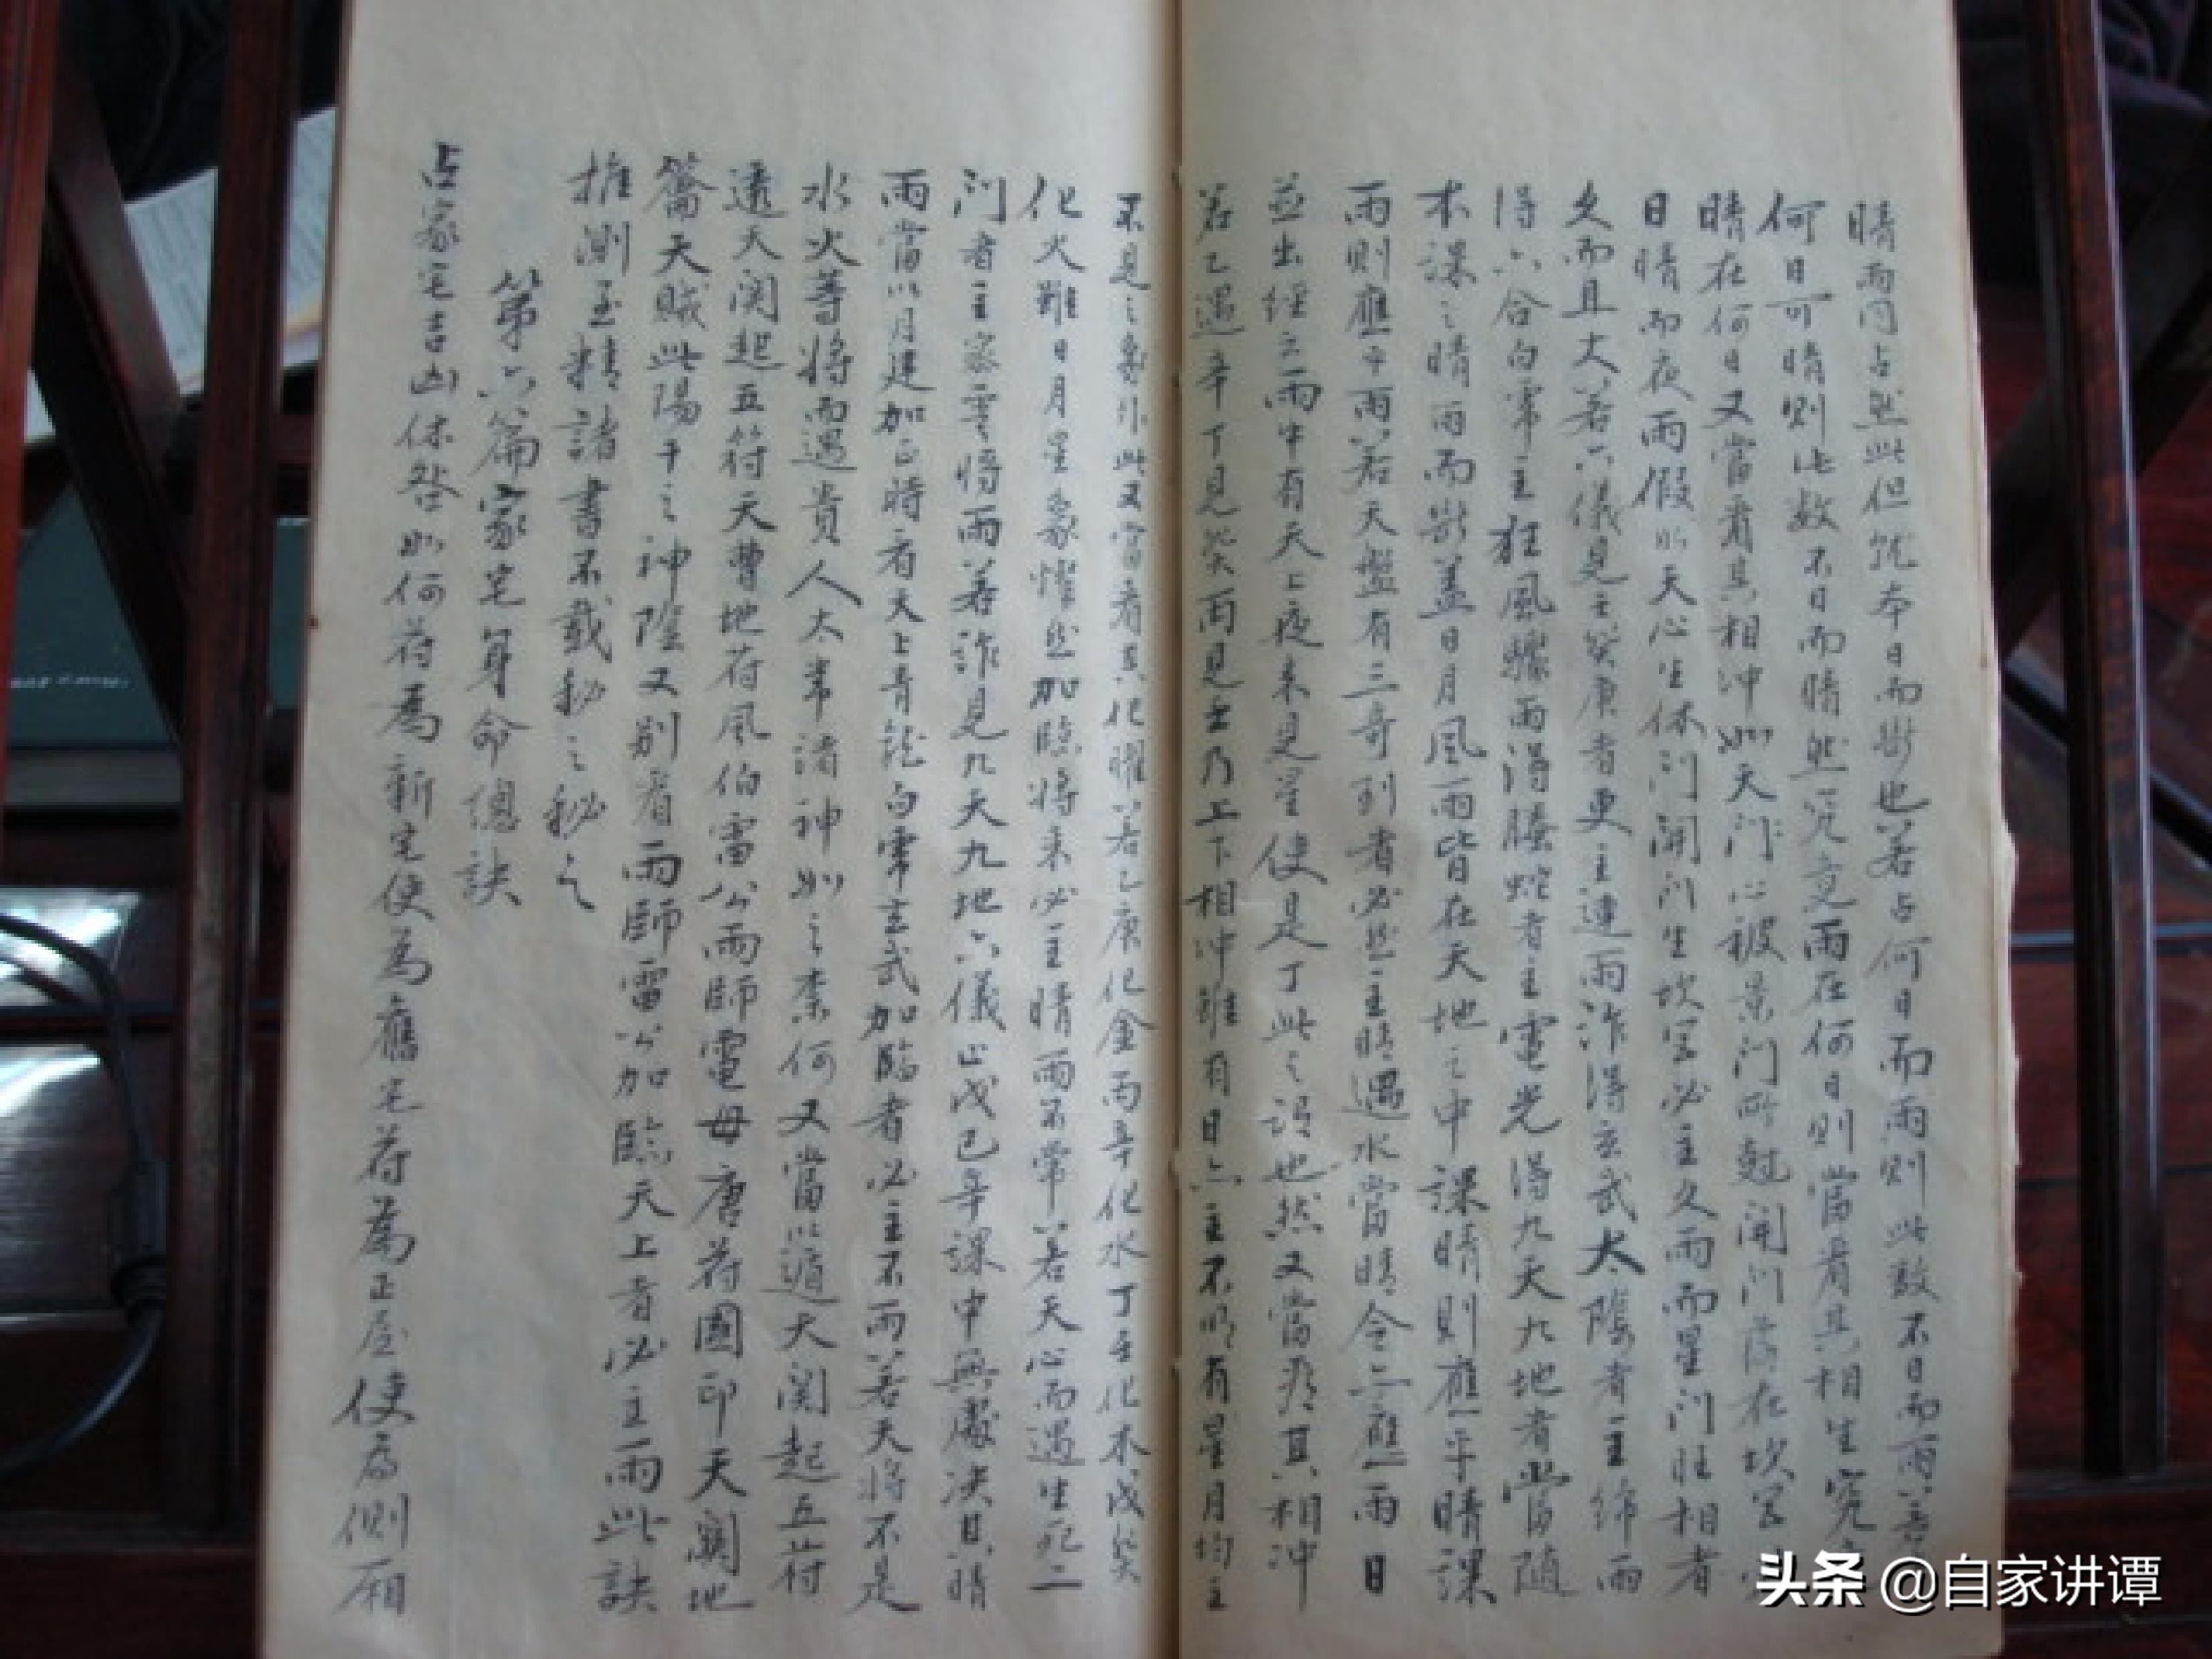 晴雨同占然此但就本日而斷也若占何日而雨則此數不日而雨若占
何日可晴則此数不日而晴然究竟雨在何日則當看其相生究
晴在何日又當看其相沖如天門心被景門所尅開門落在坎宮
日晴而夜雨假如天心生休門開門生坎宮必主久雨而星門旺相者
久而且大若六儀見壬癸庚者更主連雨詐得玄武太陰者主綿雨
得六合白常主狂風驟雨得螣蛇者主電光得九天九地者當隨
本課之晴雨而斷蓋日月風雨皆在天地之中課晴則應乎晴課
雨則應乎雨若天盤有三奇到者必然主晴遇水當晴令亦應雨日
並出經云雨中有天上夜來見星使是丁此之謂也然又當看其相沖
若乙遇辛丁見癸丙見壬乃上下相沖雖有日亦主不明有星月均主
不見之象外此又當看其化曜若乙庚化金丙辛化水丁壬化木戊癸
化火雖日月星象燿然加臨將來必主晴雨不常若天心而遇生死二
門者主密雲將雨若詐見九天九地六儀止戊己辛課中無處决其晴
雨當以月建加正時看天上青龍白常玄武加臨者必主不雨若天將不是
水火等將而遇貴人太常諸神如之柰何又當以遁天関起五符
遠天関起五符天曹地符風伯雷公雨師電母唐符國印天闗地
籥天賊此陽干之神陰又别看雨師雷公加臨天上者必主雨此訣
推測至精諸書不載秘之秘之
第六篇家宅身命總訣
占家宅吉凶休咎如何符為新宅使為舊宅符為正屋使為側厢
头条 @自家讲谭